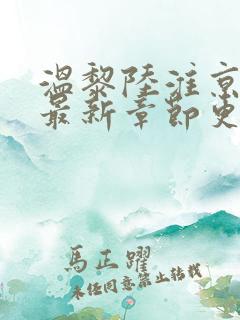 温黎陸淮京
最新章節更
馬正躍
未经同意禁止转载